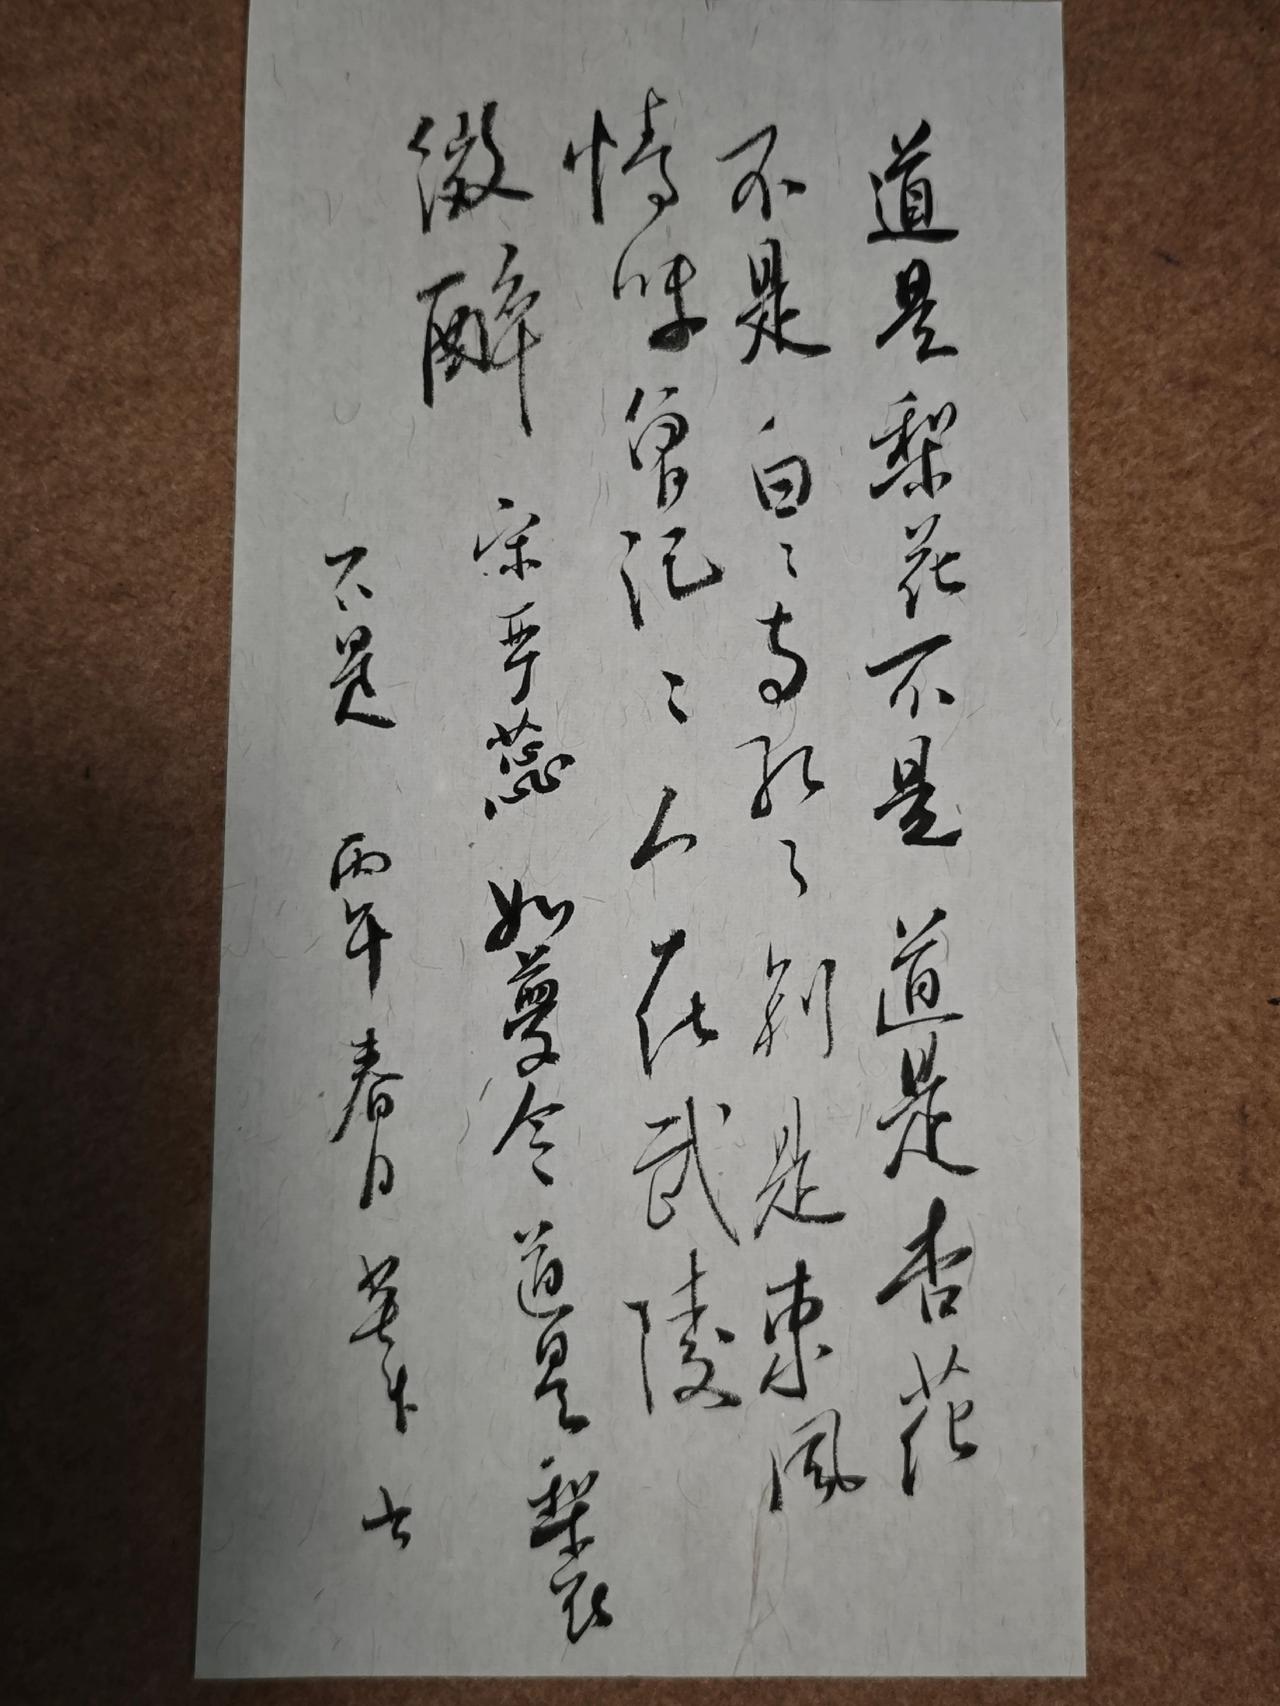 道是梨花不是道是杏花
不是白〻与红〻別是東風
情味曾记〻人在武陵
微醉
宋严蕊如夢令道是梨花
不是丙午春日書